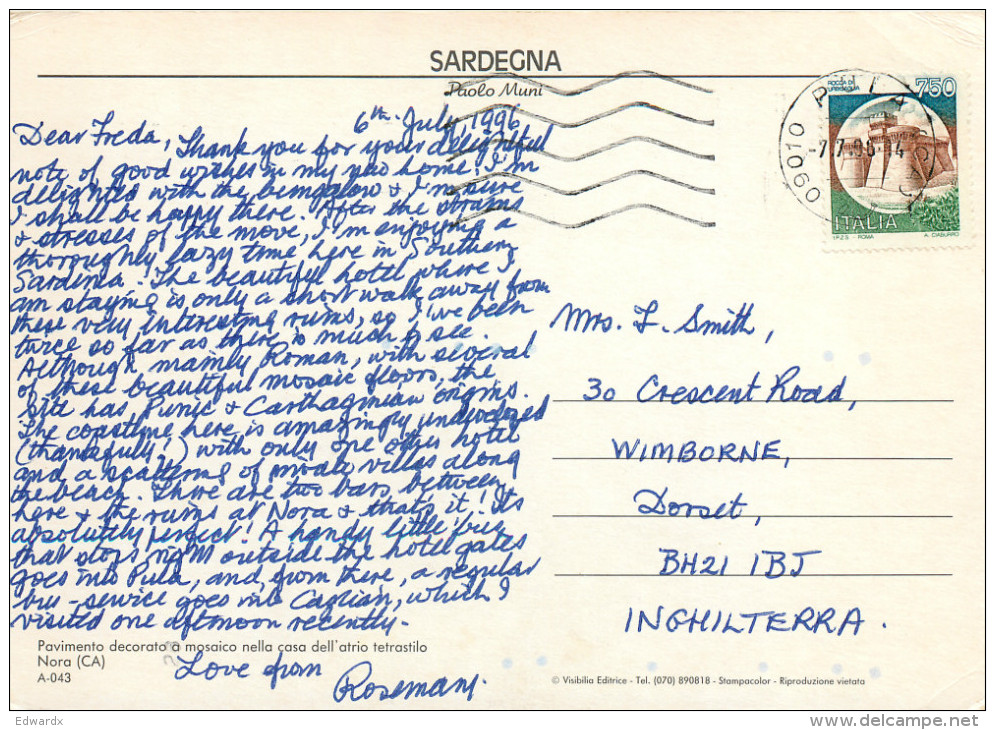 SARDEGNA
Paolo Muni
6th July, 1996
Dear Freda, Thank you for your delightful
note of good wishes in my new home! I'm
delighted with the bungalow & I'm sure
I shall be happy there. After the strains
& stresses of the move, I'm enjoying a
thoroughly lazy time here in Southern
Sardinia. The beautiful hotel where I
am staying is only a short walk away from
these very interesting ruins, so I've been
twice so far as there is much to see.
Although, mainly Roman, with several
of these beautiful mosaic floors, the
site has Punic & Carthaginian origins.
The coastline here is amazingly undeveloped
(thankfully!) with only one other hotel
and a scattering of private villas along
the beach. There are two bars, between
here & the ruins at Nora & that's it! Its
absolutely perfect! A handy little bus
that stops right outside the hotel gates
goes into Pula, and from there, a regular
bus-service goes into Cagliari, which I
visited one afternoon recently.
Love from
Rosemary.
Pavimento decorato a mosaico nella casa dell'atrio tetrastilo
Nora (CA)
A-043
ROCCA DI
URBISAGLIA
750
ITALIA
I.P.Z.S. - ROMA A. CIABURRO
09010
Mrs. F. Smith,
30 Crescent Road,
WIMBORNE,
Dorset,
BH21 1BJ
INGHILTERRA.
© Visibilia Editrice - Tel. (070) 890818 - Stampacolor - Riproduzione vietata
Edwardx
delcampe.net